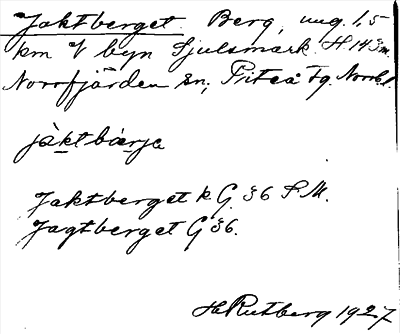 Jaktberget Berg, ung. 1,5
km V byn Sjulsmark. H 143 m.
Norrfjärden sn; Piteå Fg. Norrb. l.
jàktbærja
Jaktberget k G 36 S M.
Jagtberget G 36.
H Rutberg 1927